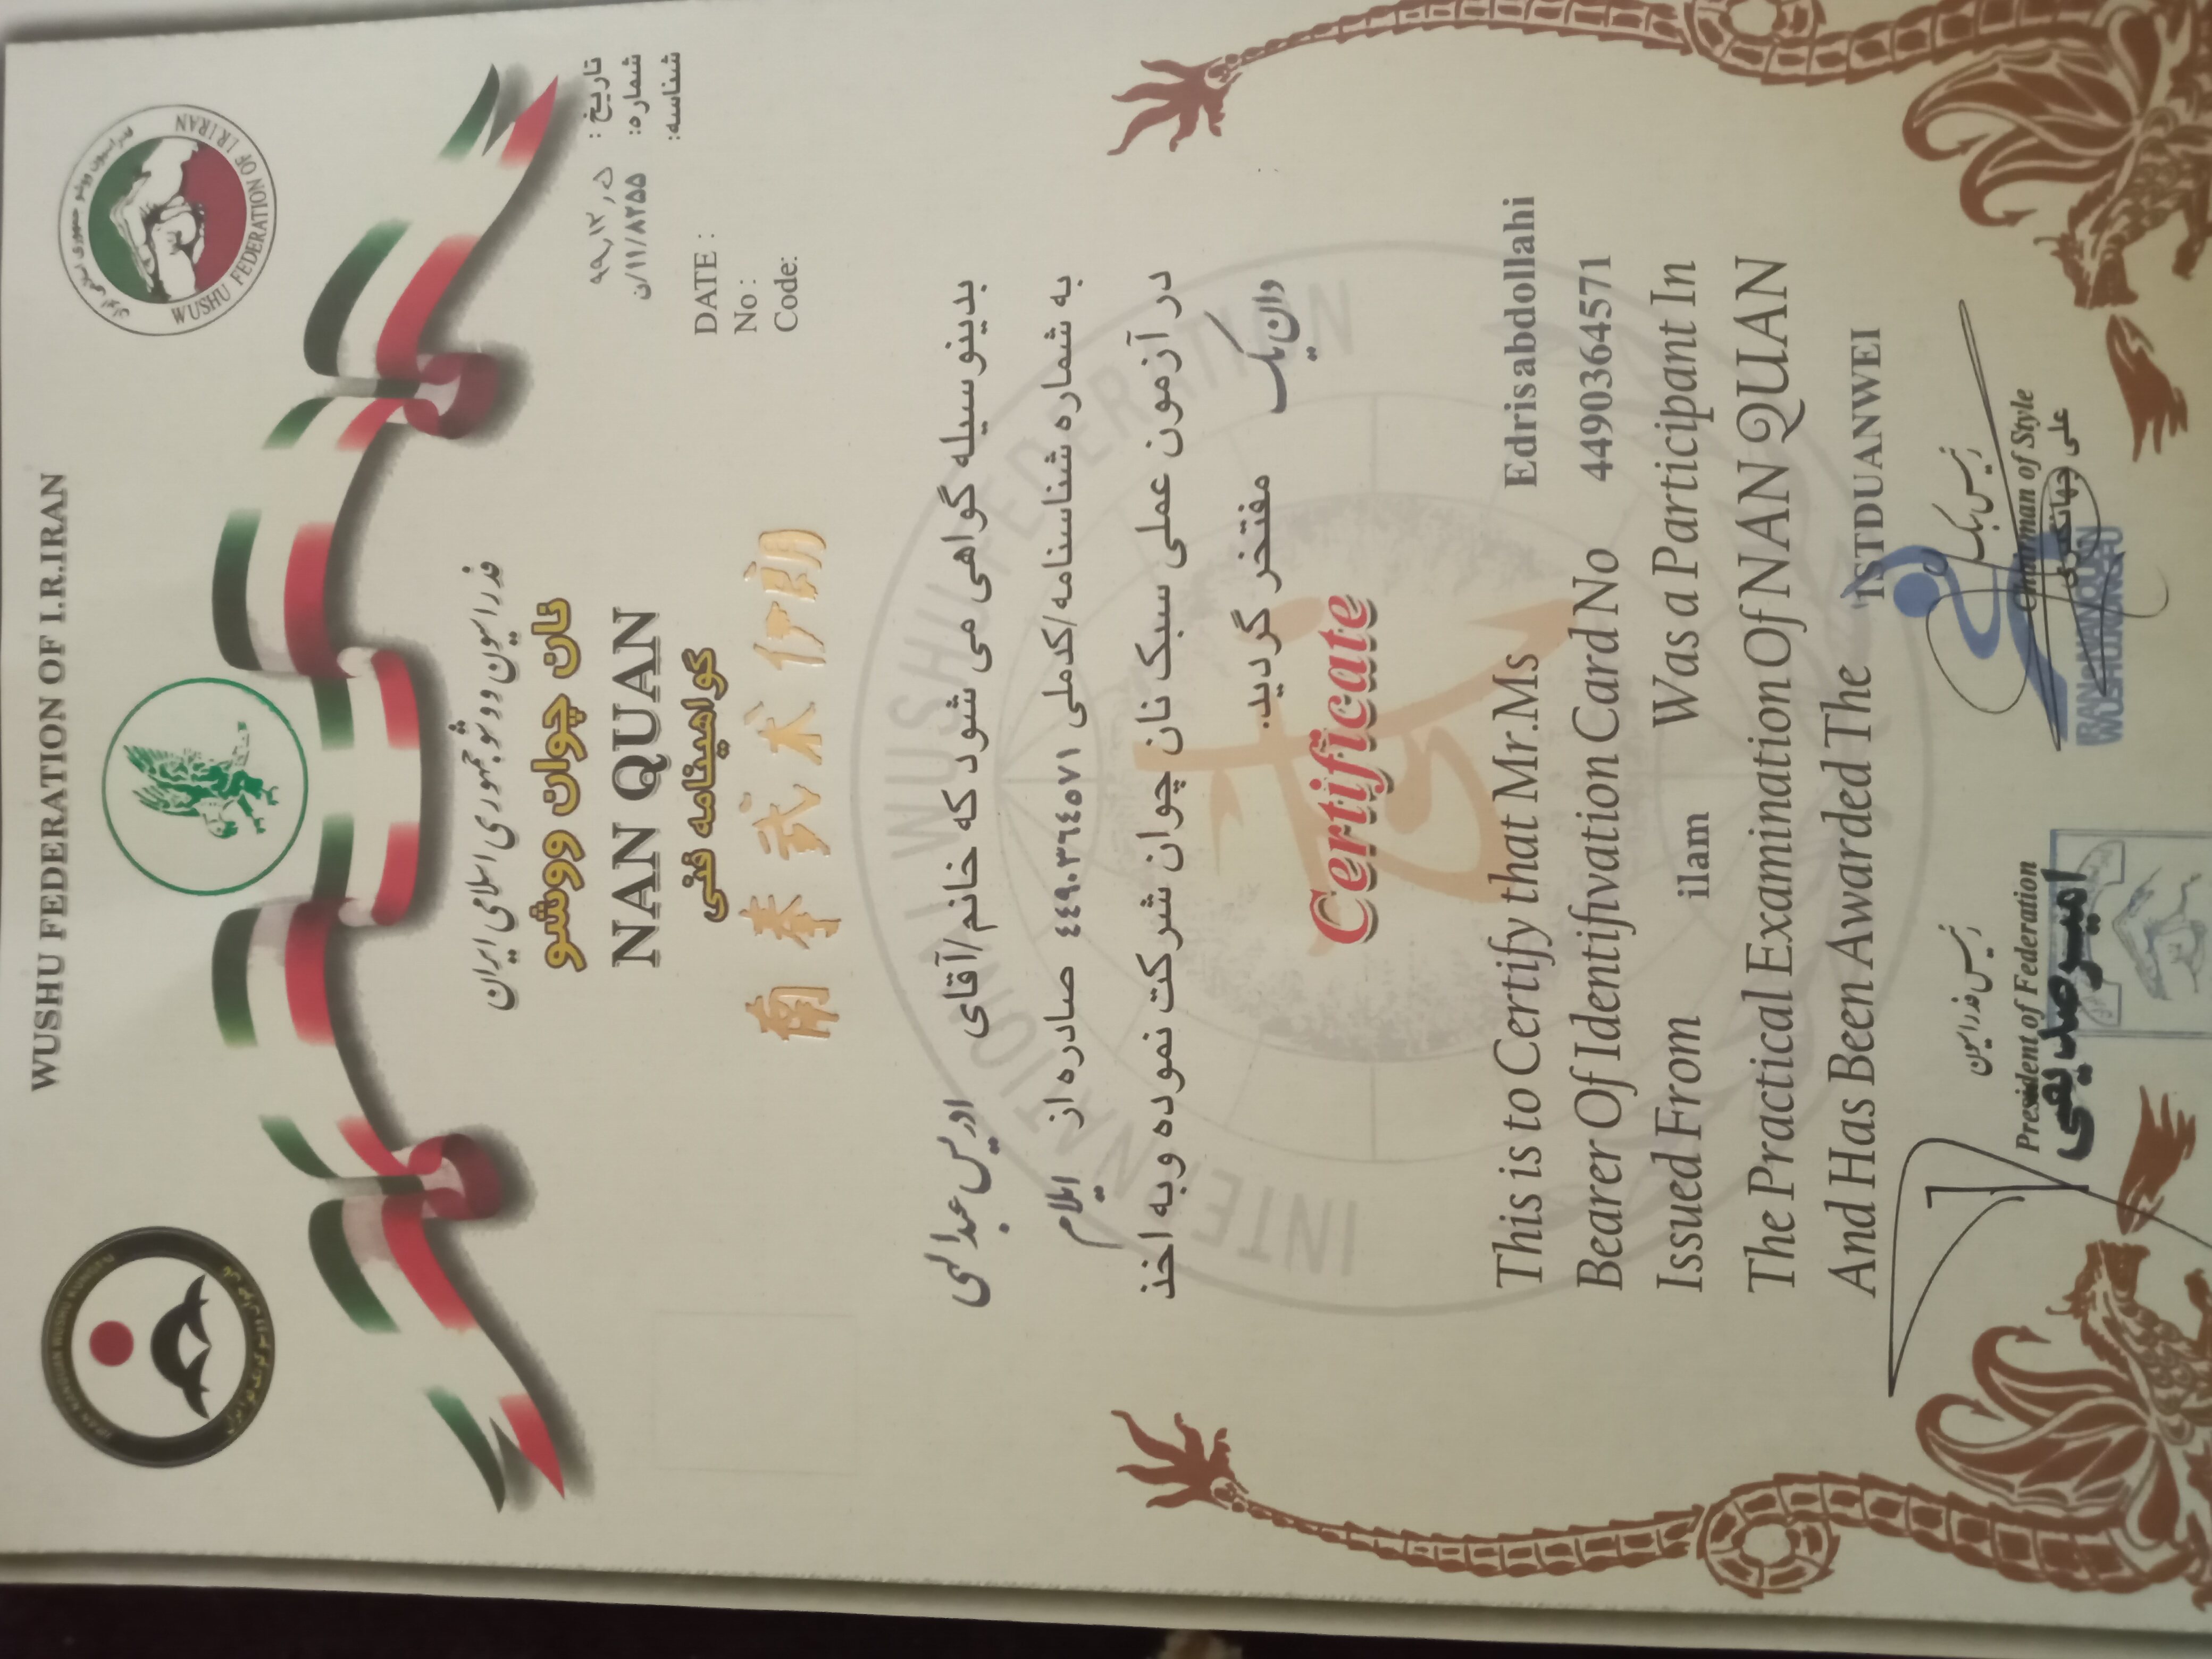 WUSHU FEDERATION OF I.R.IRAN
WUSHU FEDERATION OF I.R.IRAN
فدراسیون ووشو جمهوری اسلامی ایران
فدراسیون ووشو جمهوری اسلامی ایران
نان چوان ووشو
NAN QUAN
گواهینامه فنی
南拳武术伊朗
تاریخ :
شماره: ن/۱۱/۸۲۵۵
شناسه:
DATE :
No :
Code:
بدینوسیله گواهی می شود که خانم/آقای ادریس عبدالهی
به شماره شناسنامه/کدملی ٤٤٩٠٣٦٤٥٧١ صادره از ایلام
در آزمون عملی سبک نان چوان شرکت نموده وبه اخذ
دان یک مفتخر گردید.
INTERNATIONAL WUSHU FEDERATION
Certificate
This is to Certify that Mr.Ms Edrisabdollahi
Bearer Of Identifivation Card No 4490364571
Issued From ilam Was a Participant In
The Practical Examination Of NAN QUAN
And Has Been Awarded The 1STDUANWEI
رئیس فدراسیون
President of Federation
امیر صدیقی
رئیس سبک
Chairman of Style
علی جهانگیری
IRAN NANQUAN
WUSHU KUNGFU